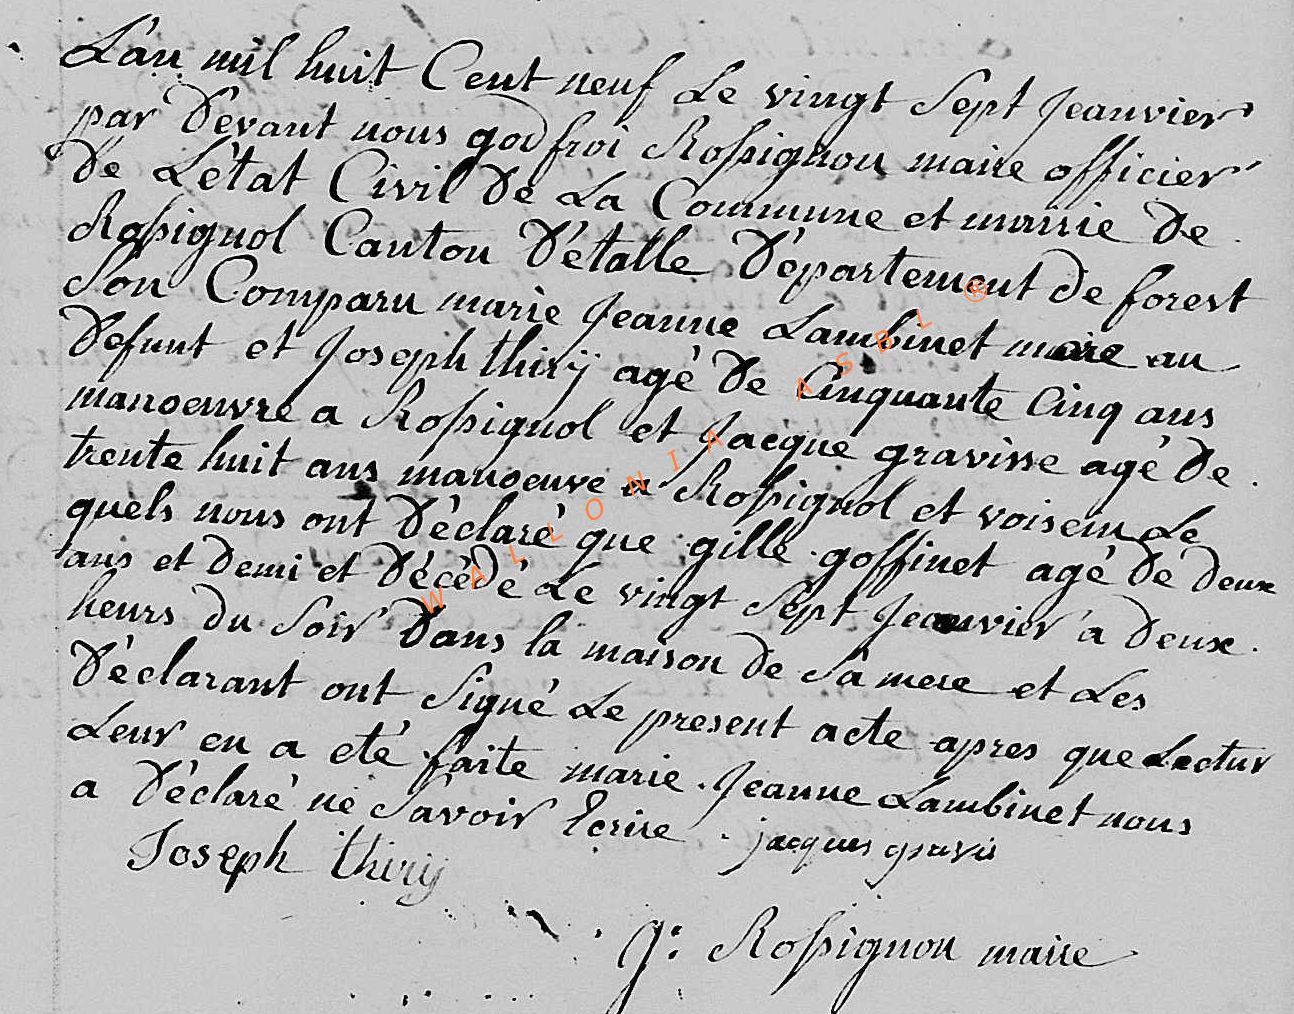 L'an mil huit Cent neuf Le vingt Sept Jeanvier
par Devant nous godfroi Rossignon maire officier
De L'état Civil De La Commune et mairie De
Rossignol Canton D'étalle Département de forest
Son Comparu marie Jeanne Lambinet mere au
Defunt et Joseph thirÿ agé De Cinquante Cinq ans
manoeuvre a Rossignol et Jacque gravisse agé De
trente huit ans manoeuve a Rossignol et voisein Le
quels nous ont Déclaré que gille goffinet agé De deux
ans et Demi et Décédé Le vingt Sept Jeanvier a Deux
heurs du Soir Dans la maison De Sa mere et Les
Déclarant ont Signé Le present acte apres que Lectur
Leur en a eté faite marie Jeanne Lambinet nous
a Déclaré ne Savoir Ecrire jacques gravis
Joseph thiry
g: Rossignon maire
WALLONIA ASBL ®